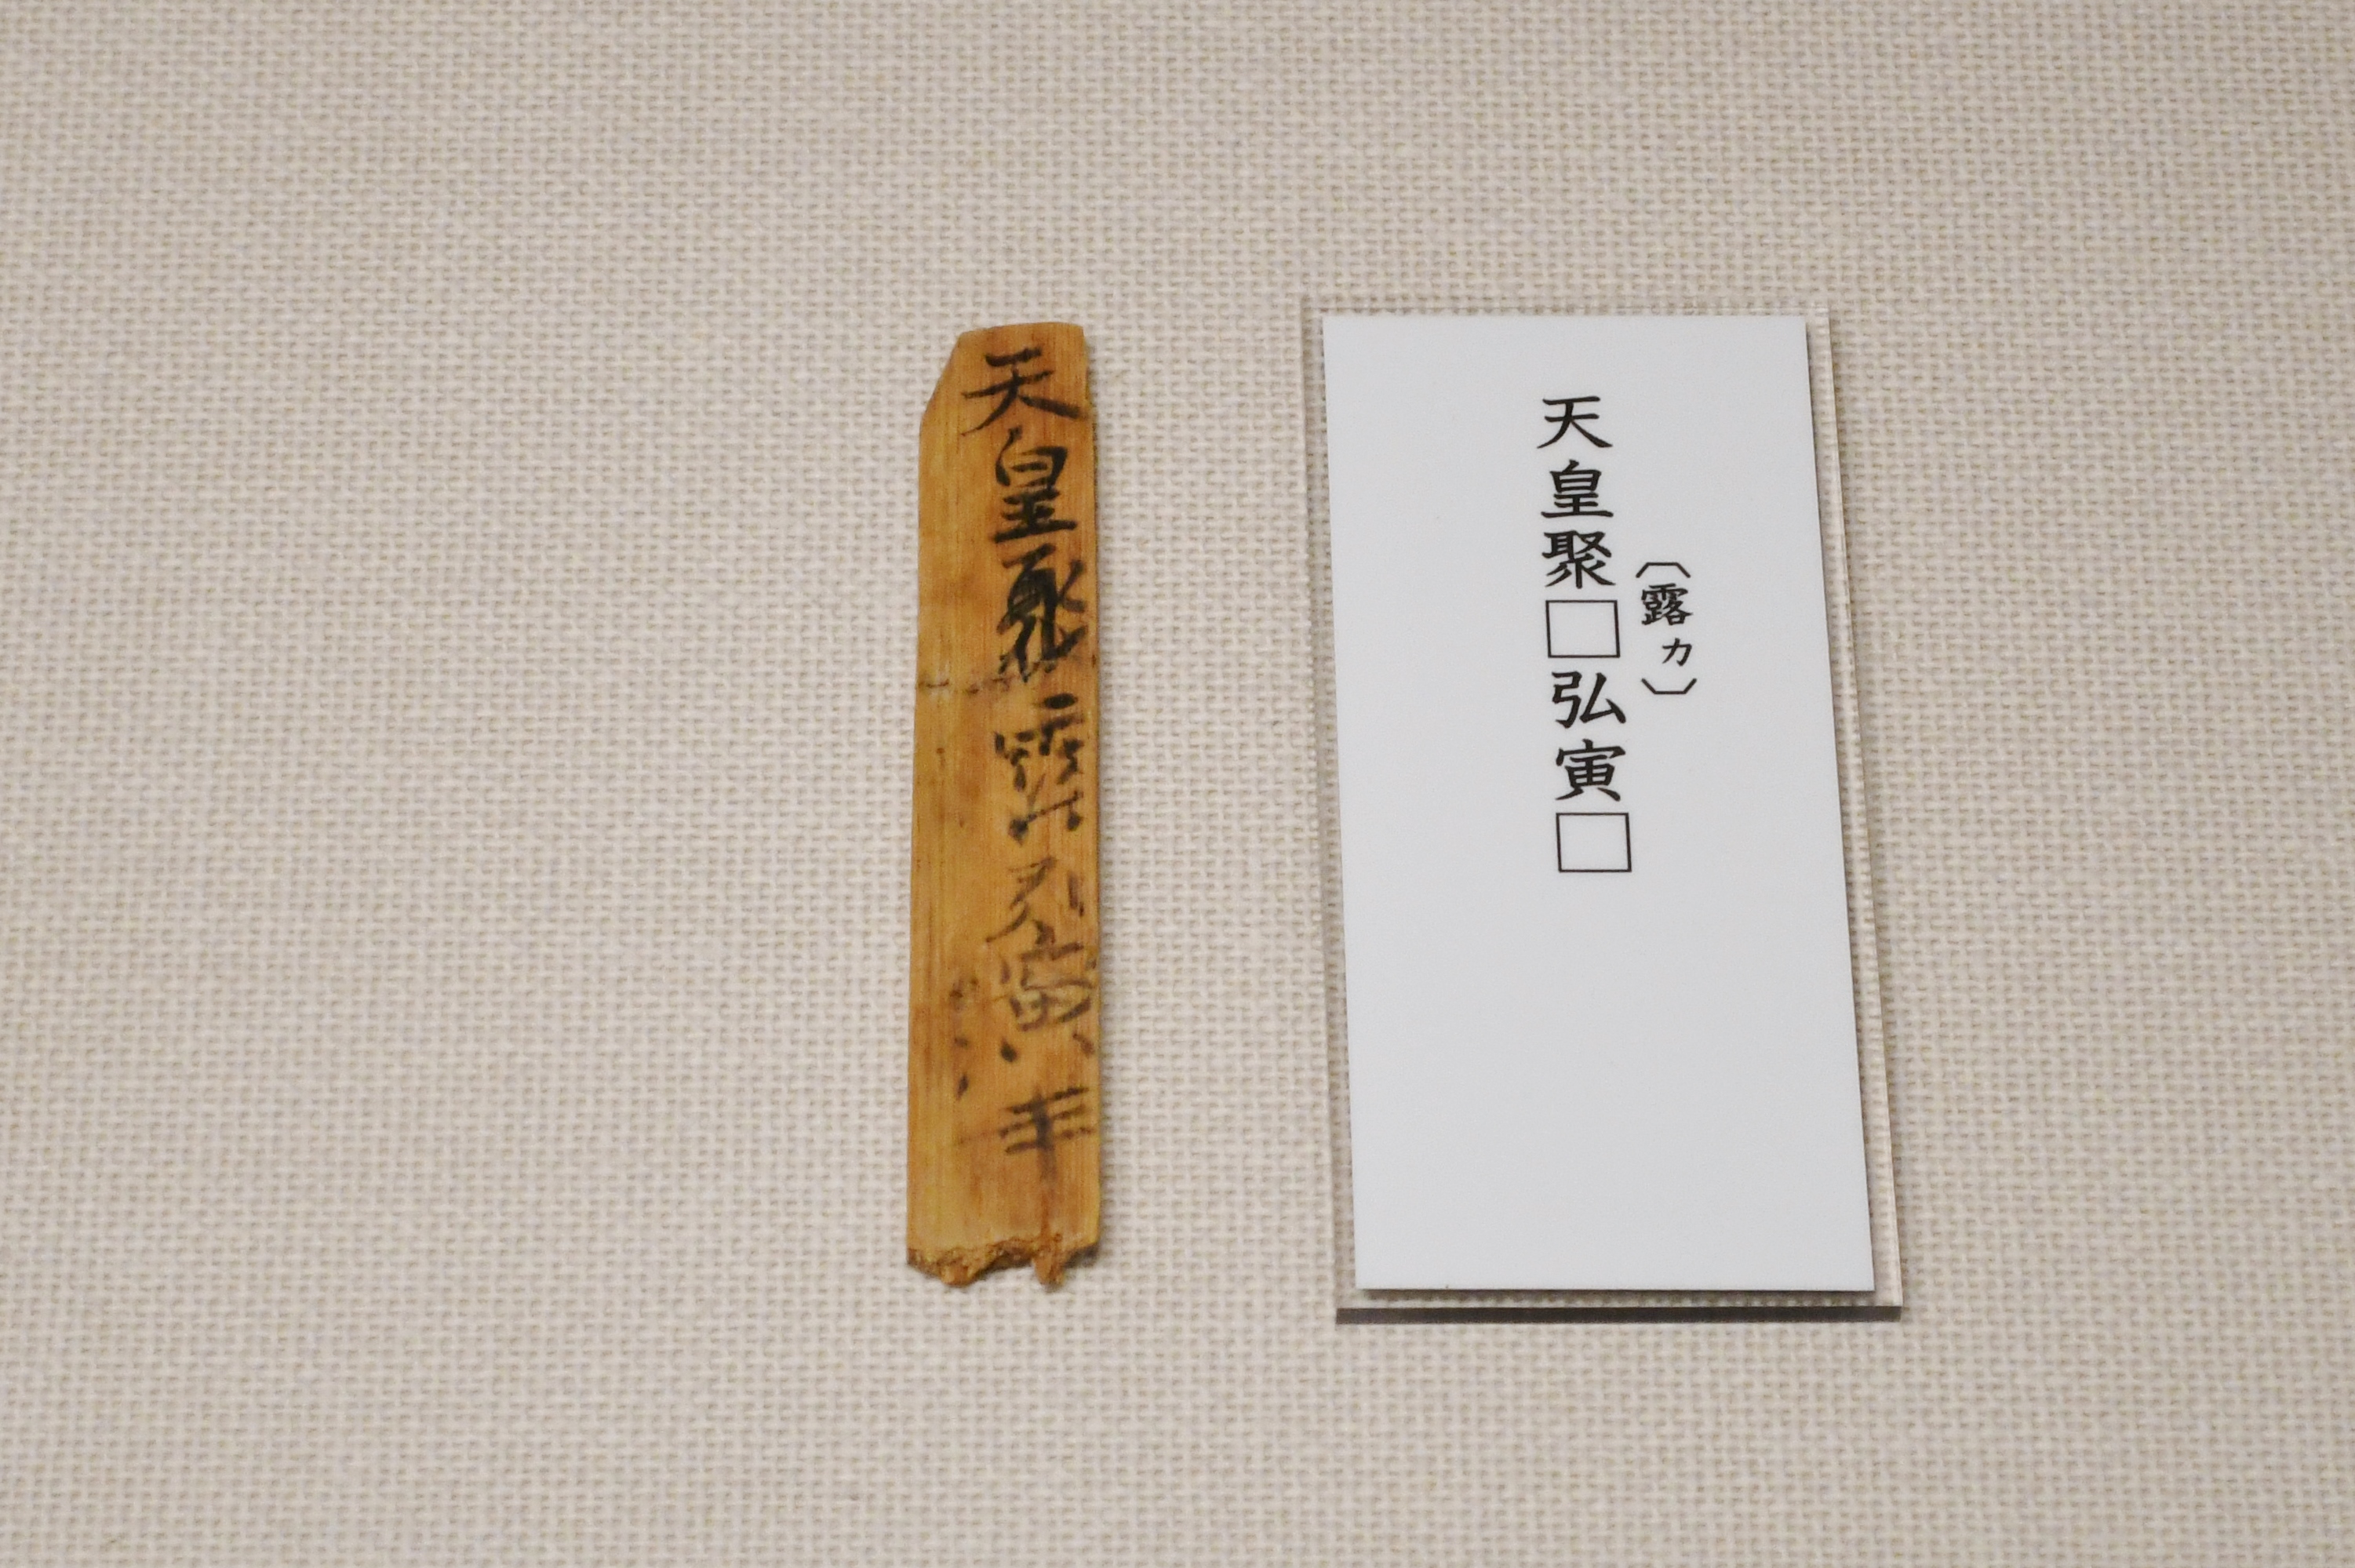 天皇聚露弘寅
天皇聚□弘寅□
〔露カ〕